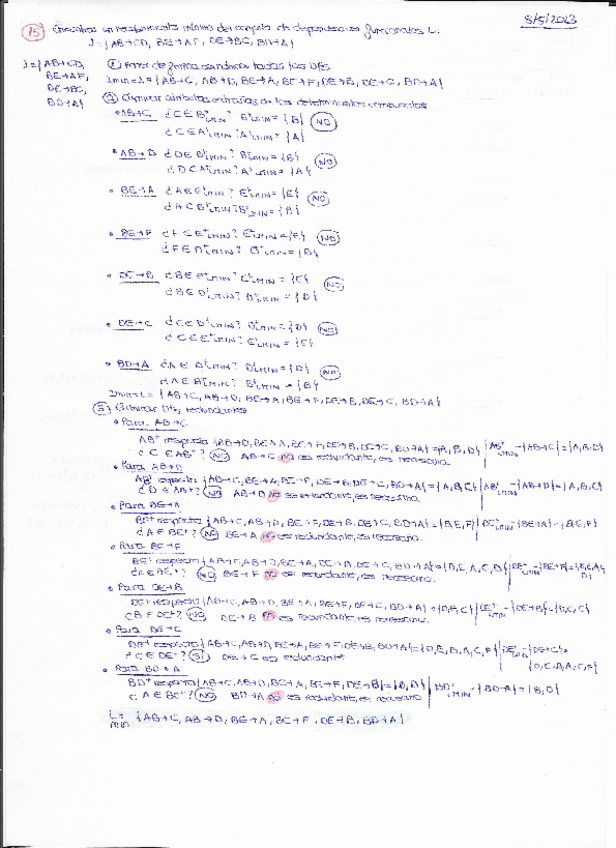 8/5/2023
15 Encontrar un recubrimiento mínimo del conjunto de dependencias funcionales L.
L={AB→CD, BE→AF, DE→BC, BD→A}
L={AB→CD, BE→AF, DE→BC, BD→A}
① Poner de forma canónica todas las DFs
Lmin=L={AB→C, AB→D, BE→A, BE→F, DE→B, DE→C, BD→A}
② Eliminar atributos extraños de los determinantes compuestos
• AB→C ¿C∈B⁺Lmin? B⁺Lmin={B} NO
¿C∈A⁺Lmin? A⁺Lmin={A}
• AB→D ¿D∈B⁺Lmin? B⁺Lmin={B} NO
¿D∈A⁺Lmin? A⁺Lmin={A}
• BE→A ¿A∈E⁺Lmin? E⁺Lmin={E} NO
¿A∈B⁺Lmin? B⁺Lmin={B}
• BE→F ¿F∈E⁺Lmin? E⁺Lmin= NO
¿F∈B⁺Lmin? B⁺Lmin={B}
• DE→B ¿B∈E⁺Lmin? E⁺Lmin={E} NO
¿B∈D⁺Lmin? D⁺Lmin={D}
• DE→C ¿C∈D⁺Lmin? D⁺Lmin={D} NO
¿C∈E⁺Lmin? E⁺Lmin={E}
• BD→A ¿A∈D⁺Lmin? D⁺Lmin={D} NO
¿A∈B⁺Lmin? B⁺Lmin={B}
Lmin=L={AB→C, AB→D, BE→A, BE→F, DE→B, DE→C, BD→A}
③ Eliminar DFs redundantes
• Para AB→C
AB⁺ respecto {AB→D, BE→A, BE→F, DE→B, DE→C, BD→A}={A,B,D} AB⁺Lmin-{AB→C}={A,B,D}
¿C∈AB⁺? NO AB→C no es redundante, es necesaria.
• Para AB→D
AB⁺ respecto {AB→C, BE→A, BE→F, DE→B, DE→C, BD→A}={A,B,C} AB⁺Lmin-{AB→D}={A,B,C}
¿D∈AB⁺? NO AB→D no es redundante, es necesaria.
• Para BE→A
BE⁺ respecto {AB→C, AB→D, BE→F, DE→B, DE→C, BD→A}={B,E,F}
¿A∈BE⁺? NO BE→A no es redundante, es necesaria.
• Para BE→F
BE⁺ respecto {AB→C, AB→D, BE→A, DE→B, DE→C, BD→A}={B,E,A,C,D}
¿F∈BE⁺? NO BE→F no es redundante, es necesaria.
• Para DE→B
DE⁺ respecto {AB→C, AB→D, BE→A, BE→F, DE→C, BD→A}={D,E,C}
¿B∈DE⁺? NO DE→B no es redundante, es necesaria.
• Para DE→C
DE⁺ respecto {AB→C, AB→D, BE→A, BE→F, DE→B, BD→A}={D,E,B,A,C,F}
¿C∈DE⁺? SI DE→C es redundante
• Para BD→A
BD⁺ respecto {AB→C, AB→D, BE→A, BE→F, DE→B}={B,D} BD⁺Lmin-{BD→A}={B,D}
NO BD→A no es redundante, es necesaria
Lmin={AB→C, AB→D, BE→A, BE→F, DE→B, BD→A}